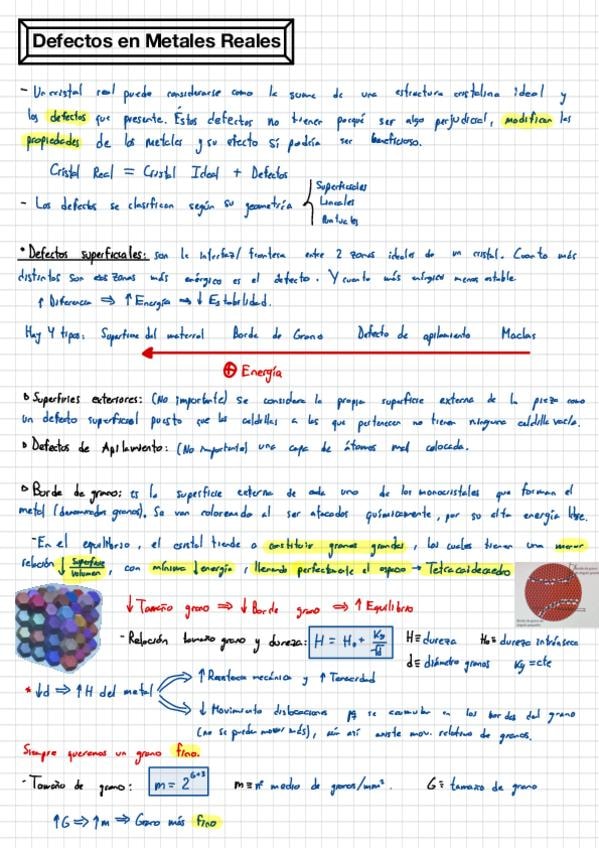 Defectos en Metales Reales
- Un cristal real puede considerarse como la suma de una estructura cristalina ideal y
los defectos que presente. Éstos defectos no tienen porqué ser algo perjudicial, modifican las
propiedades de los metales y su efecto sí podría ser beneficioso.
Cristal Real = Cristal Ideal + Defectos
- Los defectos se clasifican según su geometría
Superficiales
Lineales
Puntuales
* Defectos superficiales: son la interfaz/ frontera entre 2 zonas ideales de un cristal. Cuanto más
distintos son esas zonas más enérgico es el defecto. Y cuanto más enérgico menos estable
↑ Diferencia ⇒ ↑ Energía ⇒ ↓ Estabilidad.
Hay 4 tipos: Superficie del material Borde de Grano Defecto de apilamiento Maclas
⊕ Energía
Superficies exteriores: (No importante) se considera la propia superficie externa de la pieza como
un defecto superficial puesto que las celdillas a las que pertenecen no tienen ninguna celdilla vecina.
Defectos de Apilamiento: (No importante) una capa de átomos mal colocada.
Borde de grano: es la superficie externa de cada uno de los monocristales que forman el
metal (denominados granos). Se van coloreando al ser atacados químicamente, por su alta energía libre.
- En el equilibrio, el cristal tiende a constituir granos grandes, los cuales tienen una menor
relación ↓ Superficie/Volumen, con mínima ↓ energía, llenando perfectamente el espacio → Tetracaidecaedro
↓ Tamaño grano ⇒ ↓ Borde grano ⇒ ↑ Equilibrio
- Relación tamaño grano y dureza: H = H₀ + Ky/√d H≡ dureza H₀≡ dureza intrínseca
d≡ diámetro granos Ky = cte
* ↓d ⇒ ↑H del metal
↑ Resistencia mecánica y ↑ Tenacidad
↓ Movimiento dislocaciones pq se acumulan en los bordes del grano
(no se puede mover más), aún así existe mov. relativo de granos.
Siempre queremos un grano fino.
- Tamaño de grano: m = 2^(G+3) m ≡ nº medio de granos/mm². G ≡ tamaño de grano
↑G ⇒ ↑m ⇒ Grano más fino